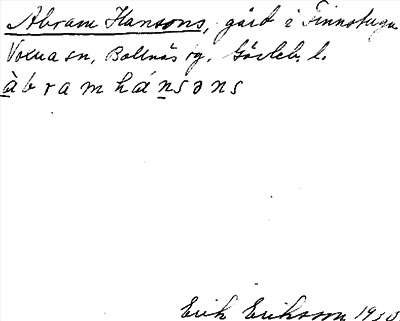 Abram Hansons, gård i Finnstuga
Voxna sn, Bollnäs og. Gävleb. l.
àbramhánsəns
Erik Eriksson